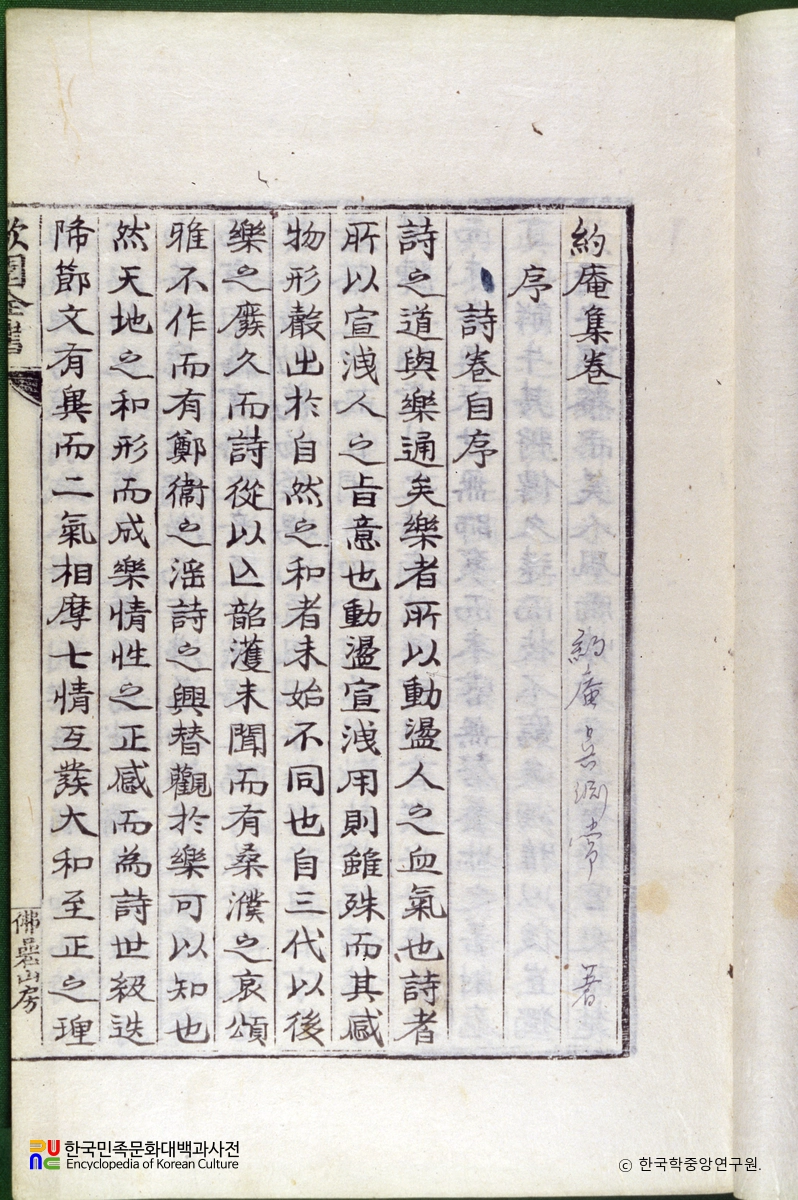 約庵集卷
約庵 吳淵常 著
序
詩卷自序
詩之道與樂通矣樂者所以動盪人之血氣也詩者
所以宣洩人之旨意也動盪宣洩用則雖殊而其感
物形聲出於自然之和者未始不同也自三代以後
樂之廢久而詩從以亾韶濩未聞而有桑濮之哀頌
雅不作而有鄭衛之滛詩之興替觀於樂可以知也
然天地之和形而成樂情性之正感而為詩世級迭
降節文有異而二氣相摩七情互發大和至正之理
全書
佛巖山房
한국민족문화대백과사전
Encyclopedia of Korean Culture
© 한국학중앙연구원.